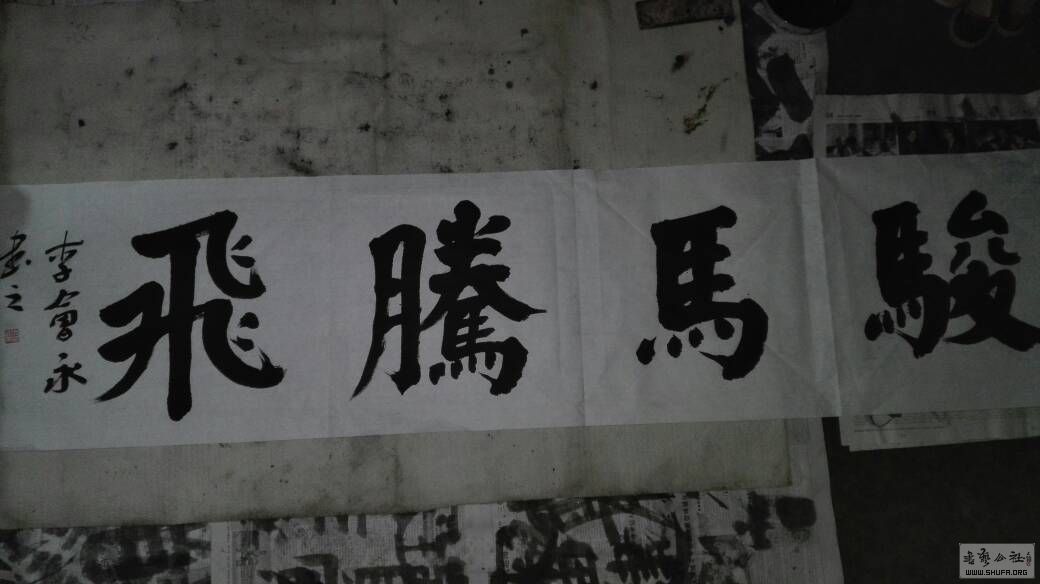 駿馬騰飛
李會永
書之
WWW.SHUFA.ORG